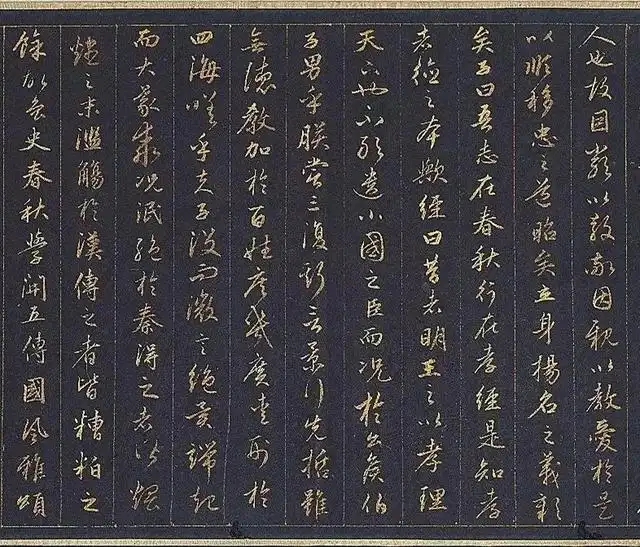 人也故因嚴以教敬因親以教愛於是
以順移忠之道昭矣立身揚名之義彰
矣子曰吾志在春秋行在孝經是知孝
者德之本歟經曰昔者明王之以孝理
天下也不敢遺小國之臣而況於公侯伯
子男乎朕嘗三復斯言景行先哲雖
無德教加於百姓庶幾廣愛刑於
四海嗟乎夫子沒而微言絕異端起
而大義乖況泯絕於秦得之者皆煨
燼之末濫觴於漢傳之者皆糟粕之
餘故魯史春秋學開五傳國風雅頌